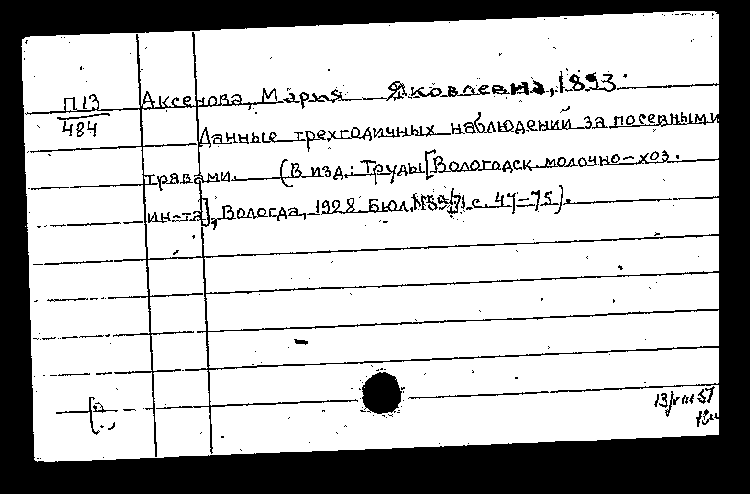 П13
484
Аксенова, Мария Яковлевна, 1893.
Данные трехгодичных наблюдений за посевными
травами. (В изд.: Труды [Вологодск. молочно-хоз.
ин-та], Вологда, 1928. Бюл. с. 47-75).
13/VIII 51